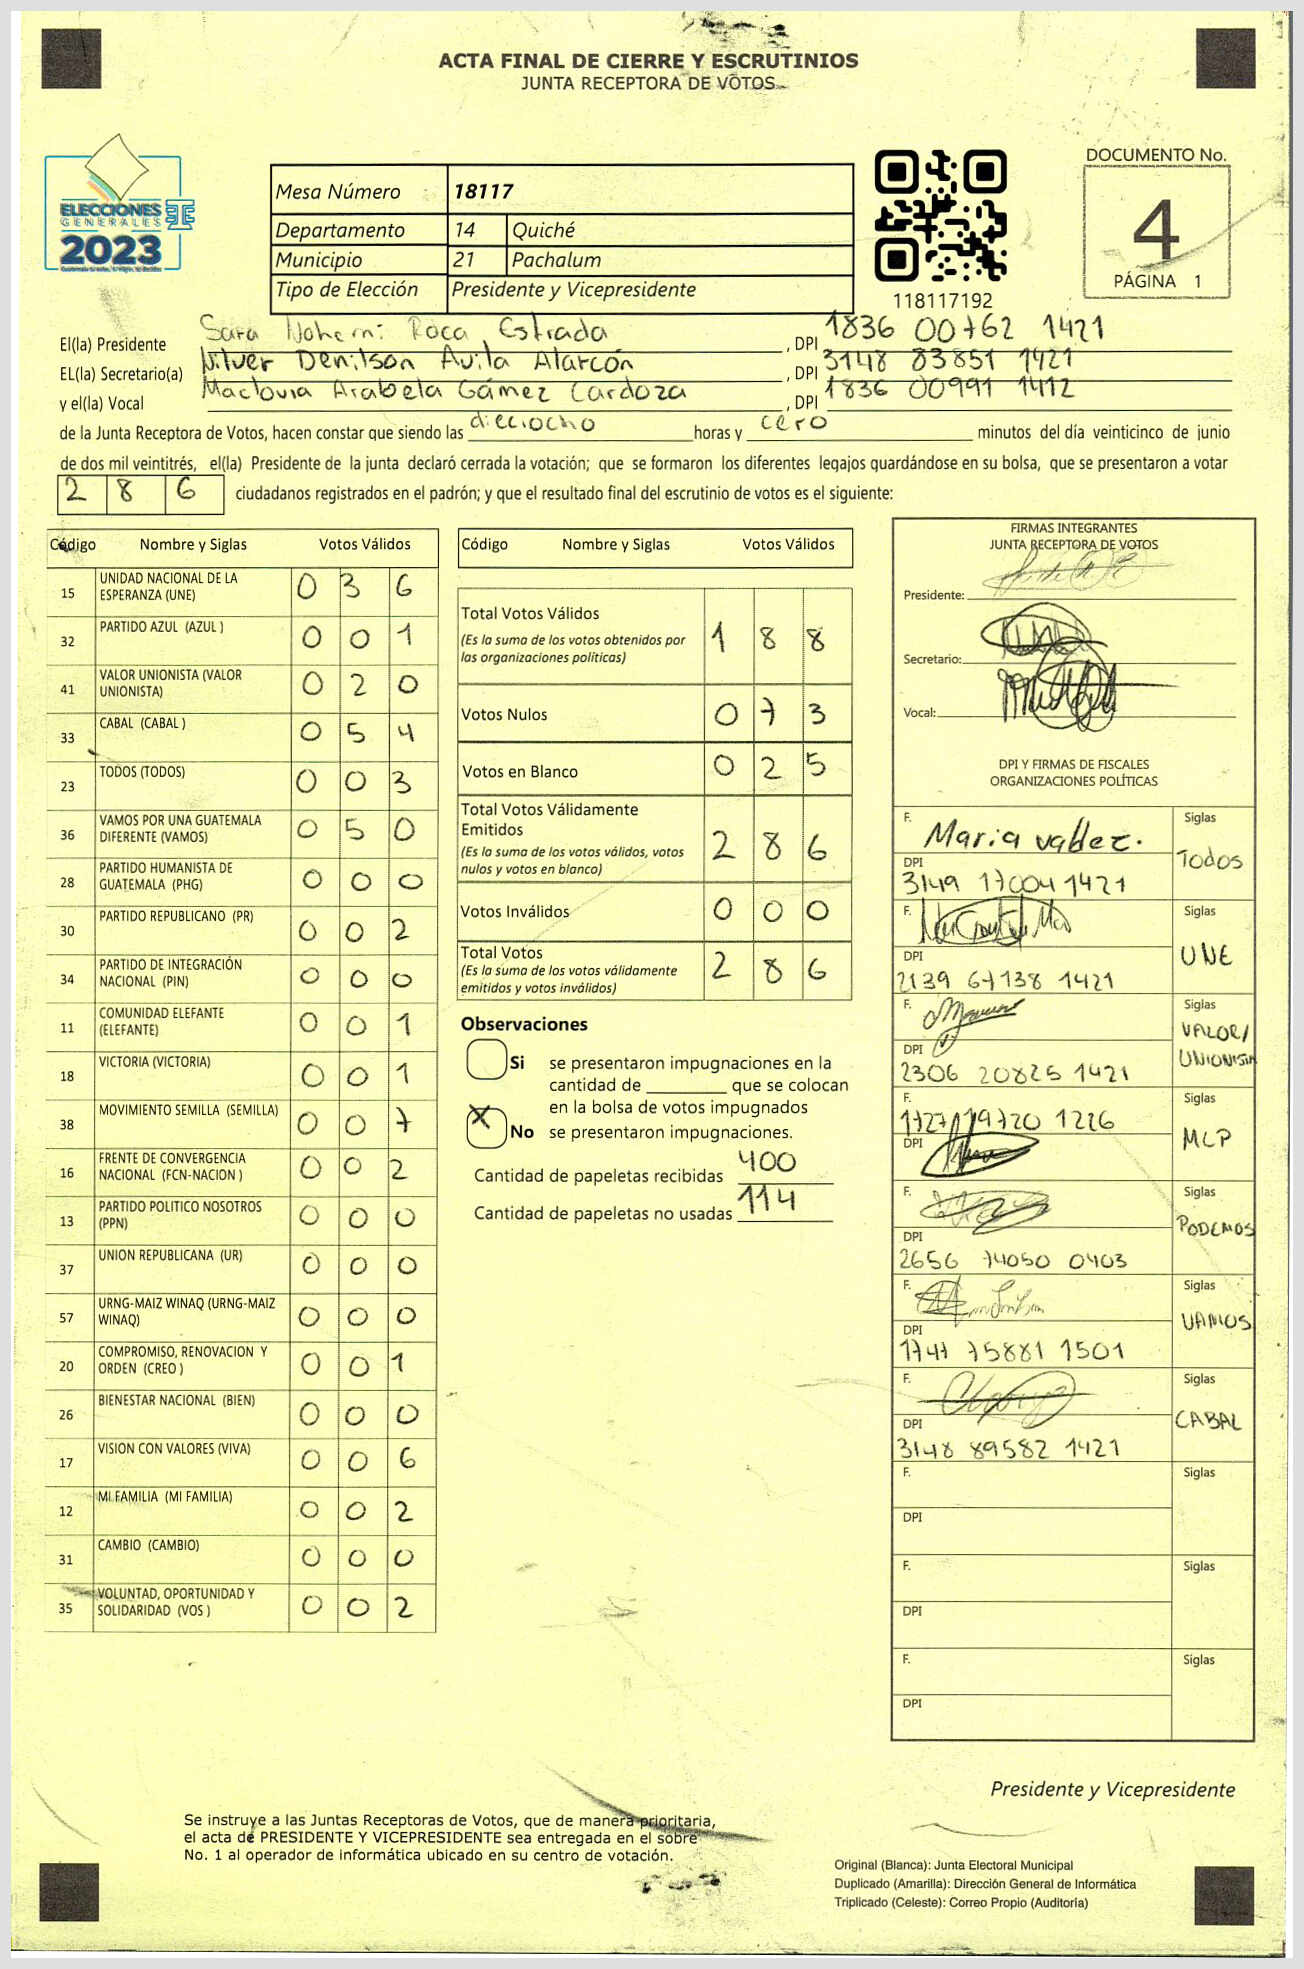 ACTA FINAL DE CIERRE Y ESCRUTINIOS
JUNTA RECEPTORA DE VOTOS
ELECCIONES
GENERALES
2023
Mesa Número 18117
Departamento 14 Quiché
Municipio 21 Pachalum
Tipo de Elección Presidente y Vicepresidente
118117192
DOCUMENTO No.
4
PÁGINA 1
El(la) Presidente Sara Nohemi Roca Estrada , DPI 1836 00762 1421
EL(la) Secretario(a) Nilver Denilson Avila Alarcón , DPI 3148 83851 1421
y el(la) Vocal Maclovia Arabela Gámez Cardoza , DPI 1836 00991 1412
de la Junta Receptora de Votos, hacen constar que siendo las dieciocho horas y cero minutos del día veinticinco de junio
de dos mil veintitrés, el(la) Presidente de la junta declaró cerrada la votación; que se formaron los diferentes legajos guardándose en su bolsa, que se presentaron a votar
2 8 6 ciudadanos registrados en el padrón; y que el resultado final del escrutinio de votos es el siguiente:
Código Nombre y Siglas Votos Válidos
15 UNIDAD NACIONAL DE LA ESPERANZA (UNE) 0 3 6
32 PARTIDO AZUL (AZUL ) 0 0 1
41 VALOR UNIONISTA (VALOR UNIONISTA) 0 2 0
33 CABAL (CABAL ) 0 5 4
23 TODOS (TODOS) 0 0 3
36 VAMOS POR UNA GUATEMALA DIFERENTE (VAMOS) 0 5 0
28 PARTIDO HUMANISTA DE GUATEMALA (PHG) 0 0 0
30 PARTIDO REPUBLICANO (PR) 0 0 2
34 PARTIDO DE INTEGRACIÓN NACIONAL (PIN) 0 0 0
11 COMUNIDAD ELEFANTE (ELEFANTE) 0 0 1
18 VICTORIA (VICTORIA) 0 0 1
38 MOVIMIENTO SEMILLA (SEMILLA) 0 0 7
16 FRENTE DE CONVERGENCIA NACIONAL (FCN-NACION ) 0 0 2
13 PARTIDO POLITICO NOSOTROS (PPN) 0 0 0
37 UNION REPUBLICANA (UR) 0 0 0
57 URNG-MAIZ WINAQ (URNG-MAIZ WINAQ) 0 0 0
20 COMPROMISO, RENOVACION Y ORDEN (CREO ) 0 0 1
26 BIENESTAR NACIONAL (BIEN) 0 0 0
17 VISION CON VALORES (VIVA) 0 0 6
12 MI FAMILIA (MI FAMILIA) 0 0 2
31 CAMBIO (CAMBIO) 0 0 0
35 VOLUNTAD, OPORTUNIDAD Y SOLIDARIDAD (VOS ) 0 0 2
Código Nombre y Siglas Votos Válidos
Total Votos Válidos 1 8 8
(Es la suma de los votos obtenidos por
las organizaciones políticas)
Votos Nulos 0 7 3
Votos en Blanco 0 2 5
Total Votos Válidamente
Emitidos 2 8 6
(Es la suma de los votos válidos, votos
nulos y votos en blanco)
Votos Inválidos 0 0 0
Total Votos 2 8 6
(Es la suma de los votos válidamente
emitidos y votos inválidos)
Observaciones
Si se presentaron impugnaciones en la
cantidad de ________ que se colocan
en la bolsa de votos impugnados
X No se presentaron impugnaciones.
Cantidad de papeletas recibidas 400
Cantidad de papeletas no usadas 114
FIRMAS INTEGRANTES
JUNTA RECEPTORA DE VOTOS
Presidente:
Secretario:
Vocal:
DPI Y FIRMAS DE FISCALES
ORGANIZACIONES POLÍTICAS
F. Maria valdez. Siglas
DPI TODOS
3149 17004 1421
F. Siglas
DPI UNE
2139 67138 1421
F. Siglas
DPI VALOR/ UNIONISTA
2306 20825 1421
F. Siglas
1727 19720 1226
DPI MLP
F. Siglas
DPI PODEMOS
2656 74050 0403
F. Siglas
DPI VAMOS
1747 75881 1501
F. Siglas
DPI CABAL
3148 89582 1421
F. Siglas
DPI
F. Siglas
DPI
F. Siglas
DPI
Presidente y Vicepresidente
Se instruye a las Juntas Receptoras de Votos, que de manera prioritaria,
el acta de PRESIDENTE Y VICEPRESIDENTE sea entregada en el sobre
No. 1 al operador de informática ubicado en su centro de votación.
Original (Blanca): Junta Electoral Municipal
Duplicado (Amarilla): Dirección General de Informática
Triplicado (Celeste): Correo Propio (Auditoría)